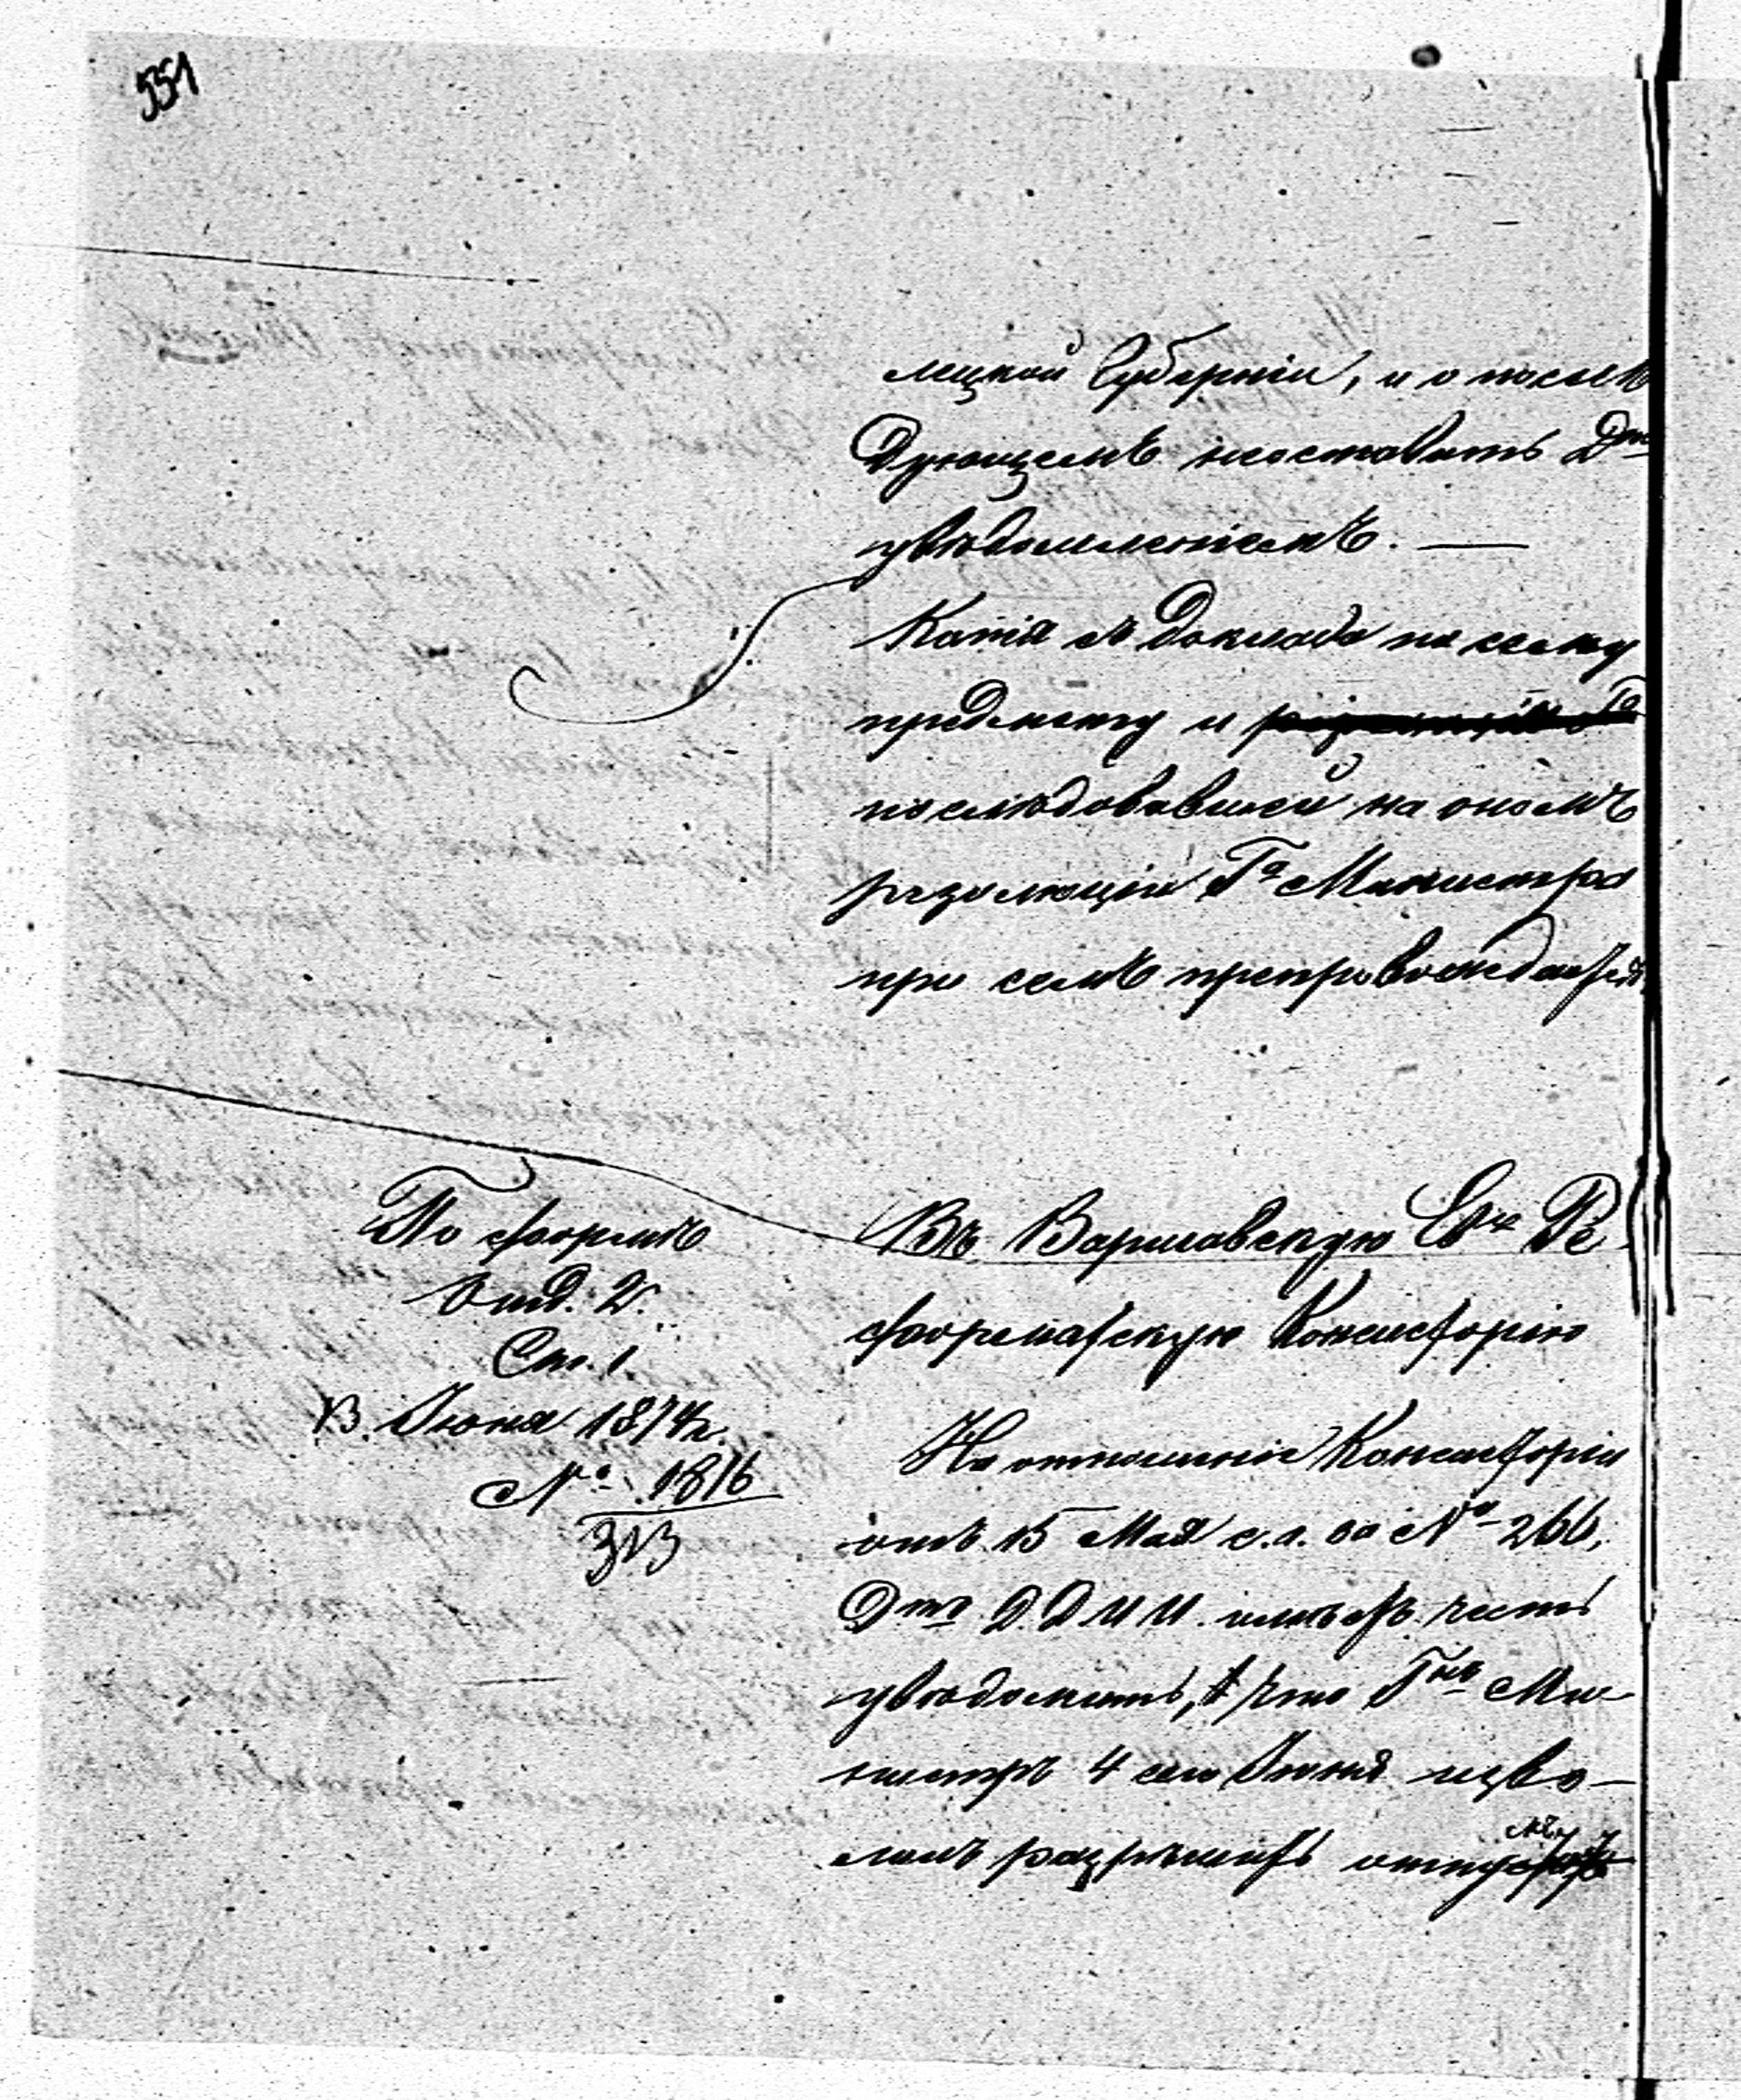 551
лецкой Губерніи, и о послѣ
дующемъ неоставить Дтъ
увѣдомленіемъ. —
Копія съ доклада по сему
предмету и
послѣдовавшей на ономъ
резолюціи Га Министра
при семъ препровождается.
По формѣ
Отд. 2.
Ст. 1
13. Іюня 1874 г.
№ 1816
313
Въ Варшавскую Евч Ре
форматскую Консисторію
На отношеніе Консисторіи
отъ 15 Мая с. г. за № 266,
Дтъ Д. Д. И. И. имѣетъ честь
увѣдомить, что Гнъ Ми-
нистръ 4 сего Іюня изво-
лилъ разрѣшить